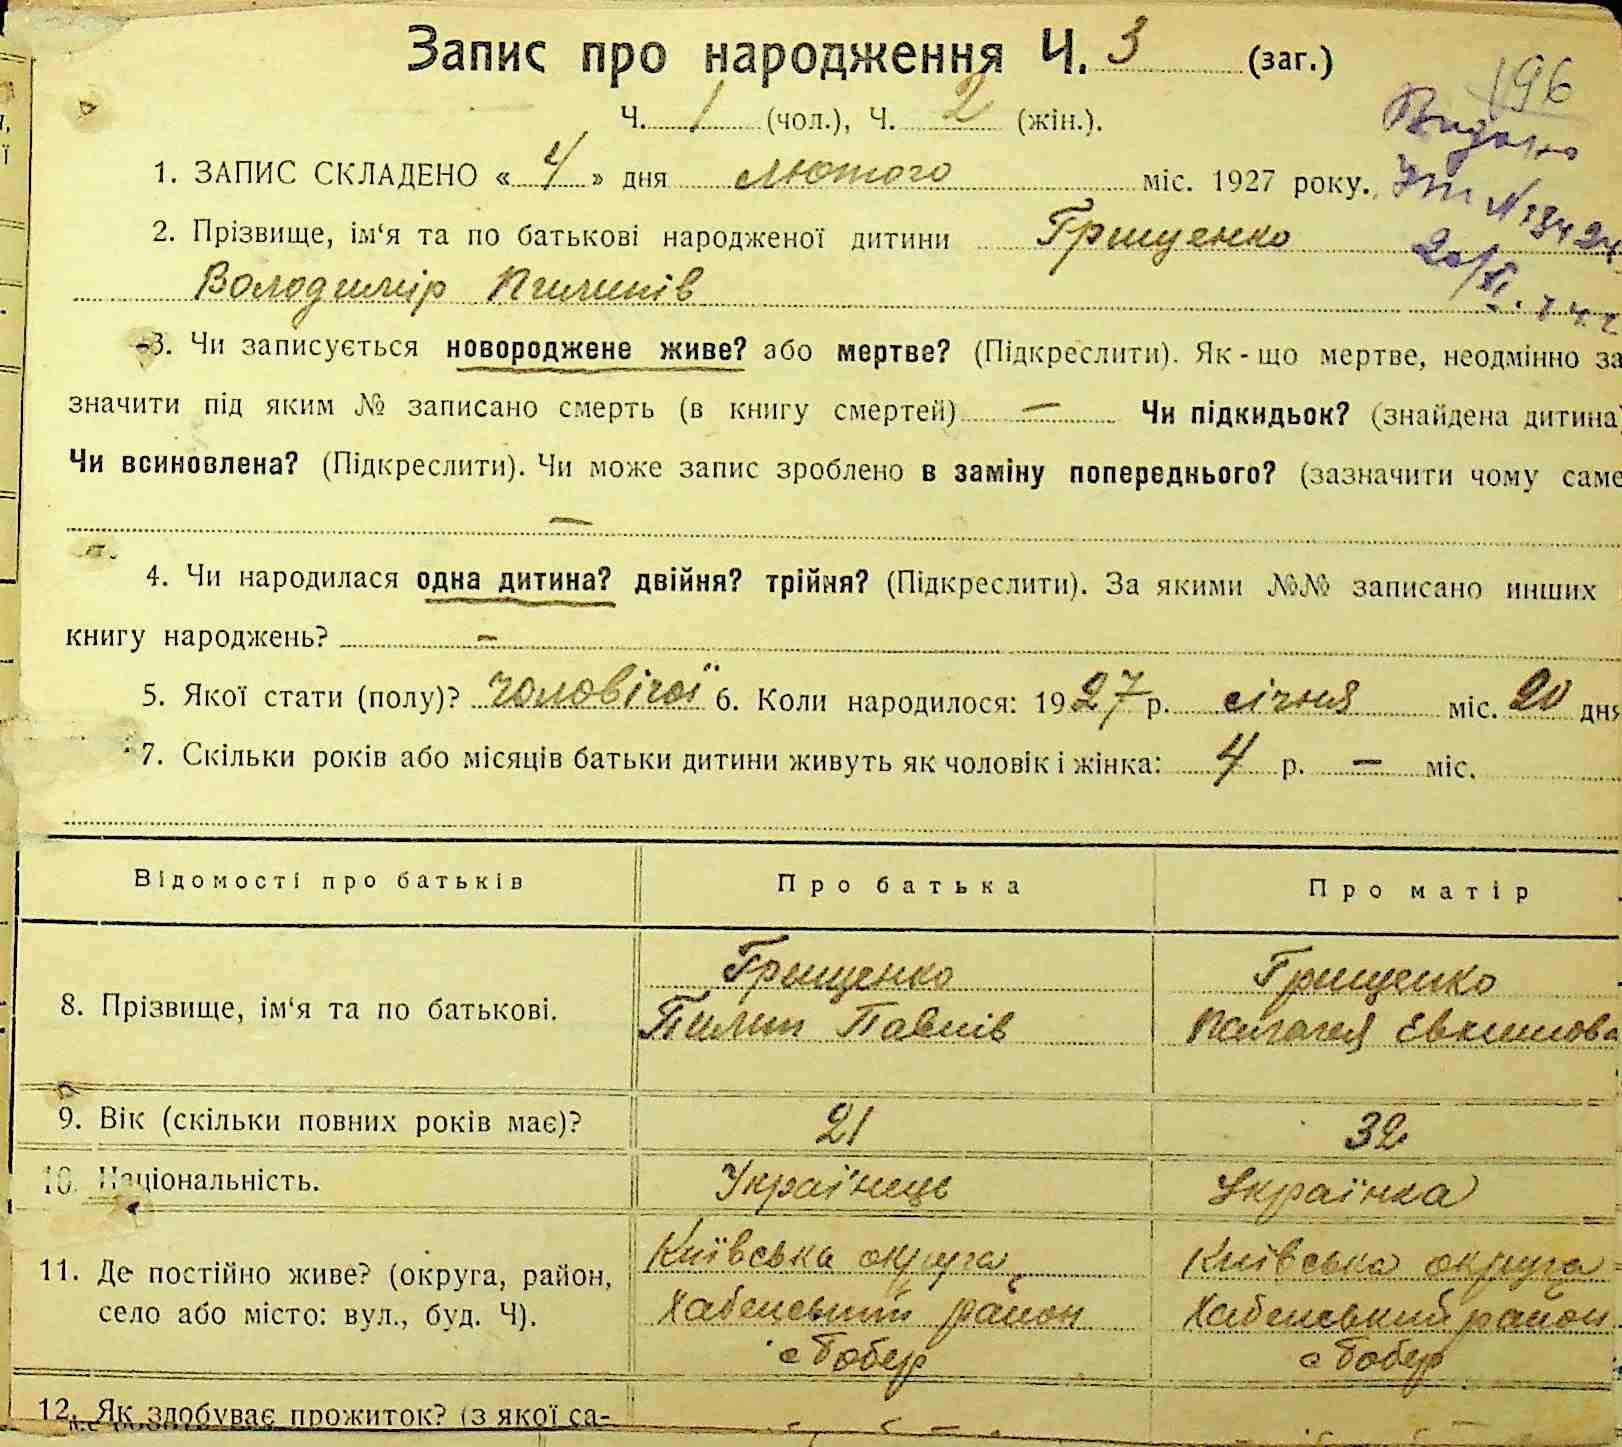 Запис про народження Ч. 3 (заг.)
196
Ч. 1 (чол.), Ч. 2 (жін.).
Видано
1. ЗАПИС СКЛАДЕНО « 4 » дня лютого міс. 1927 року.
2. Прізвище, ім‘я та по батькові народженої дитини Грищенко
Володимір Пилипів
-3. Чи записується новороджене живе? або мертве? (Підкреслити). Як-що мертве, неодмінно за
значити під яким № записано смерть (в книгу смертей) — Чи підкидьок? (знайдена дитина)
Чи всиновлена? (Підкреслити). Чи може запис зроблено в заміну попереднього? (зазначити чому саме
—
4. Чи народилася одна дитина? двійня? трійня? (Підкреслити). За якими №№ записано инших
книгу народжень? -
5. Якої стати (полу)? чоловічої 6. Коли народилося: 1927 р. січня міс. 20 дня
7. Скільки років або місяців батьки дитини живуть як чоловік і жінка: 4 р. — міс.
Відомості про батьків Про батька Про матір
Грищенко Грищенко
8. Прізвище, ім‘я та по батькові.
Пилип Павлів Палагея
9. Вік (скільки повних років має)? 21 32
10. Національність. Українець Українка
Київська округа Київська округа
11. Де постійно живе? (округа, район,
село або місто: вул., буд. Ч).
Хабенський район Хабенський район
с Бобер с Бобер
12. Як здобуває прожиток? (з якої са-